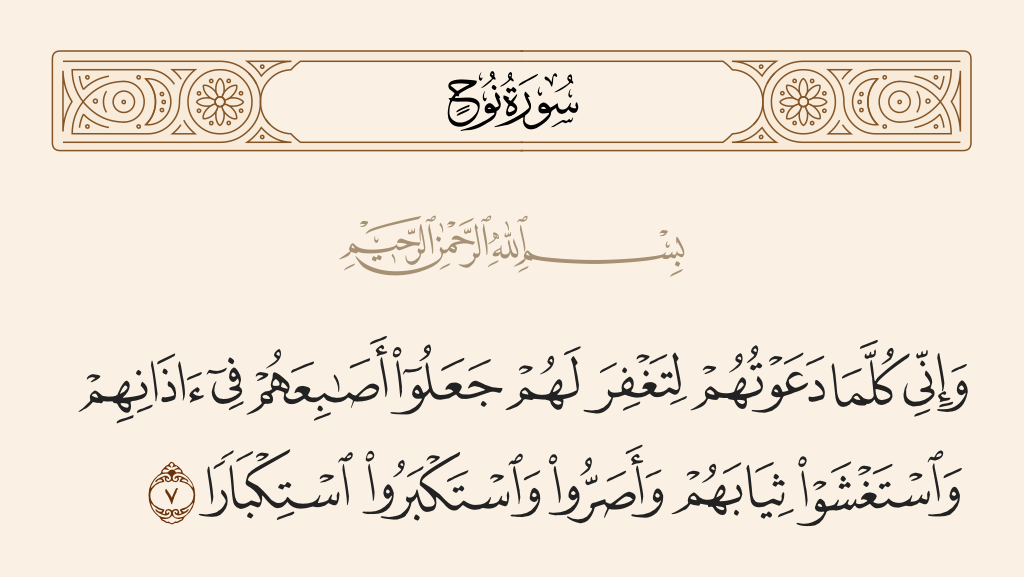 سُورَةُ نُوحٍ
بِسْمِ ٱللَّهِ ٱلرَّحْمَٰنِ ٱلرَّحِيمِ
وَإِنِّى كُلَّمَا دَعَوْتُهُمْ لِتَغْفِرَ لَهُمْ جَعَلُوٓا۟ أَصَٰبِعَهُمْ فِىٓ ءَاذَانِهِمْ
وَٱسْتَغْشَوْا۟ ثِيَابَهُمْ وَأَصَرُّوا۟ وَٱسْتَكْبَرُوا۟ ٱسْتِكْبَارًا ٧